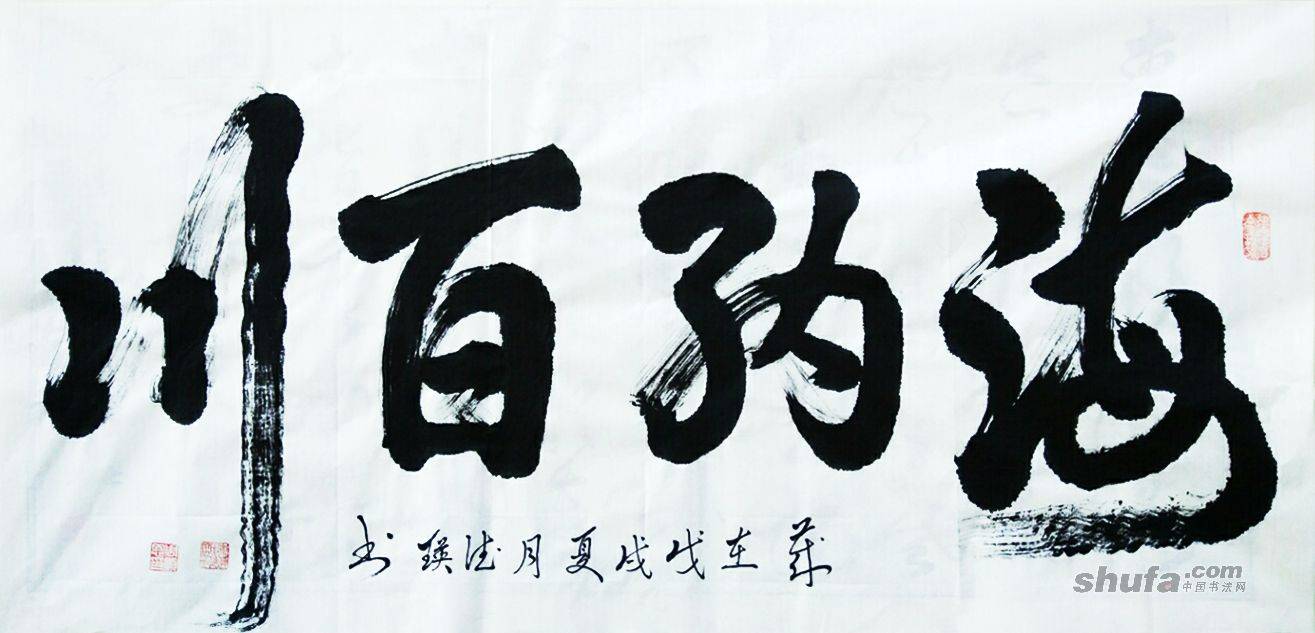 海纳百川
岁在戊戌夏月德瑛书
shufa.com
中国书法网